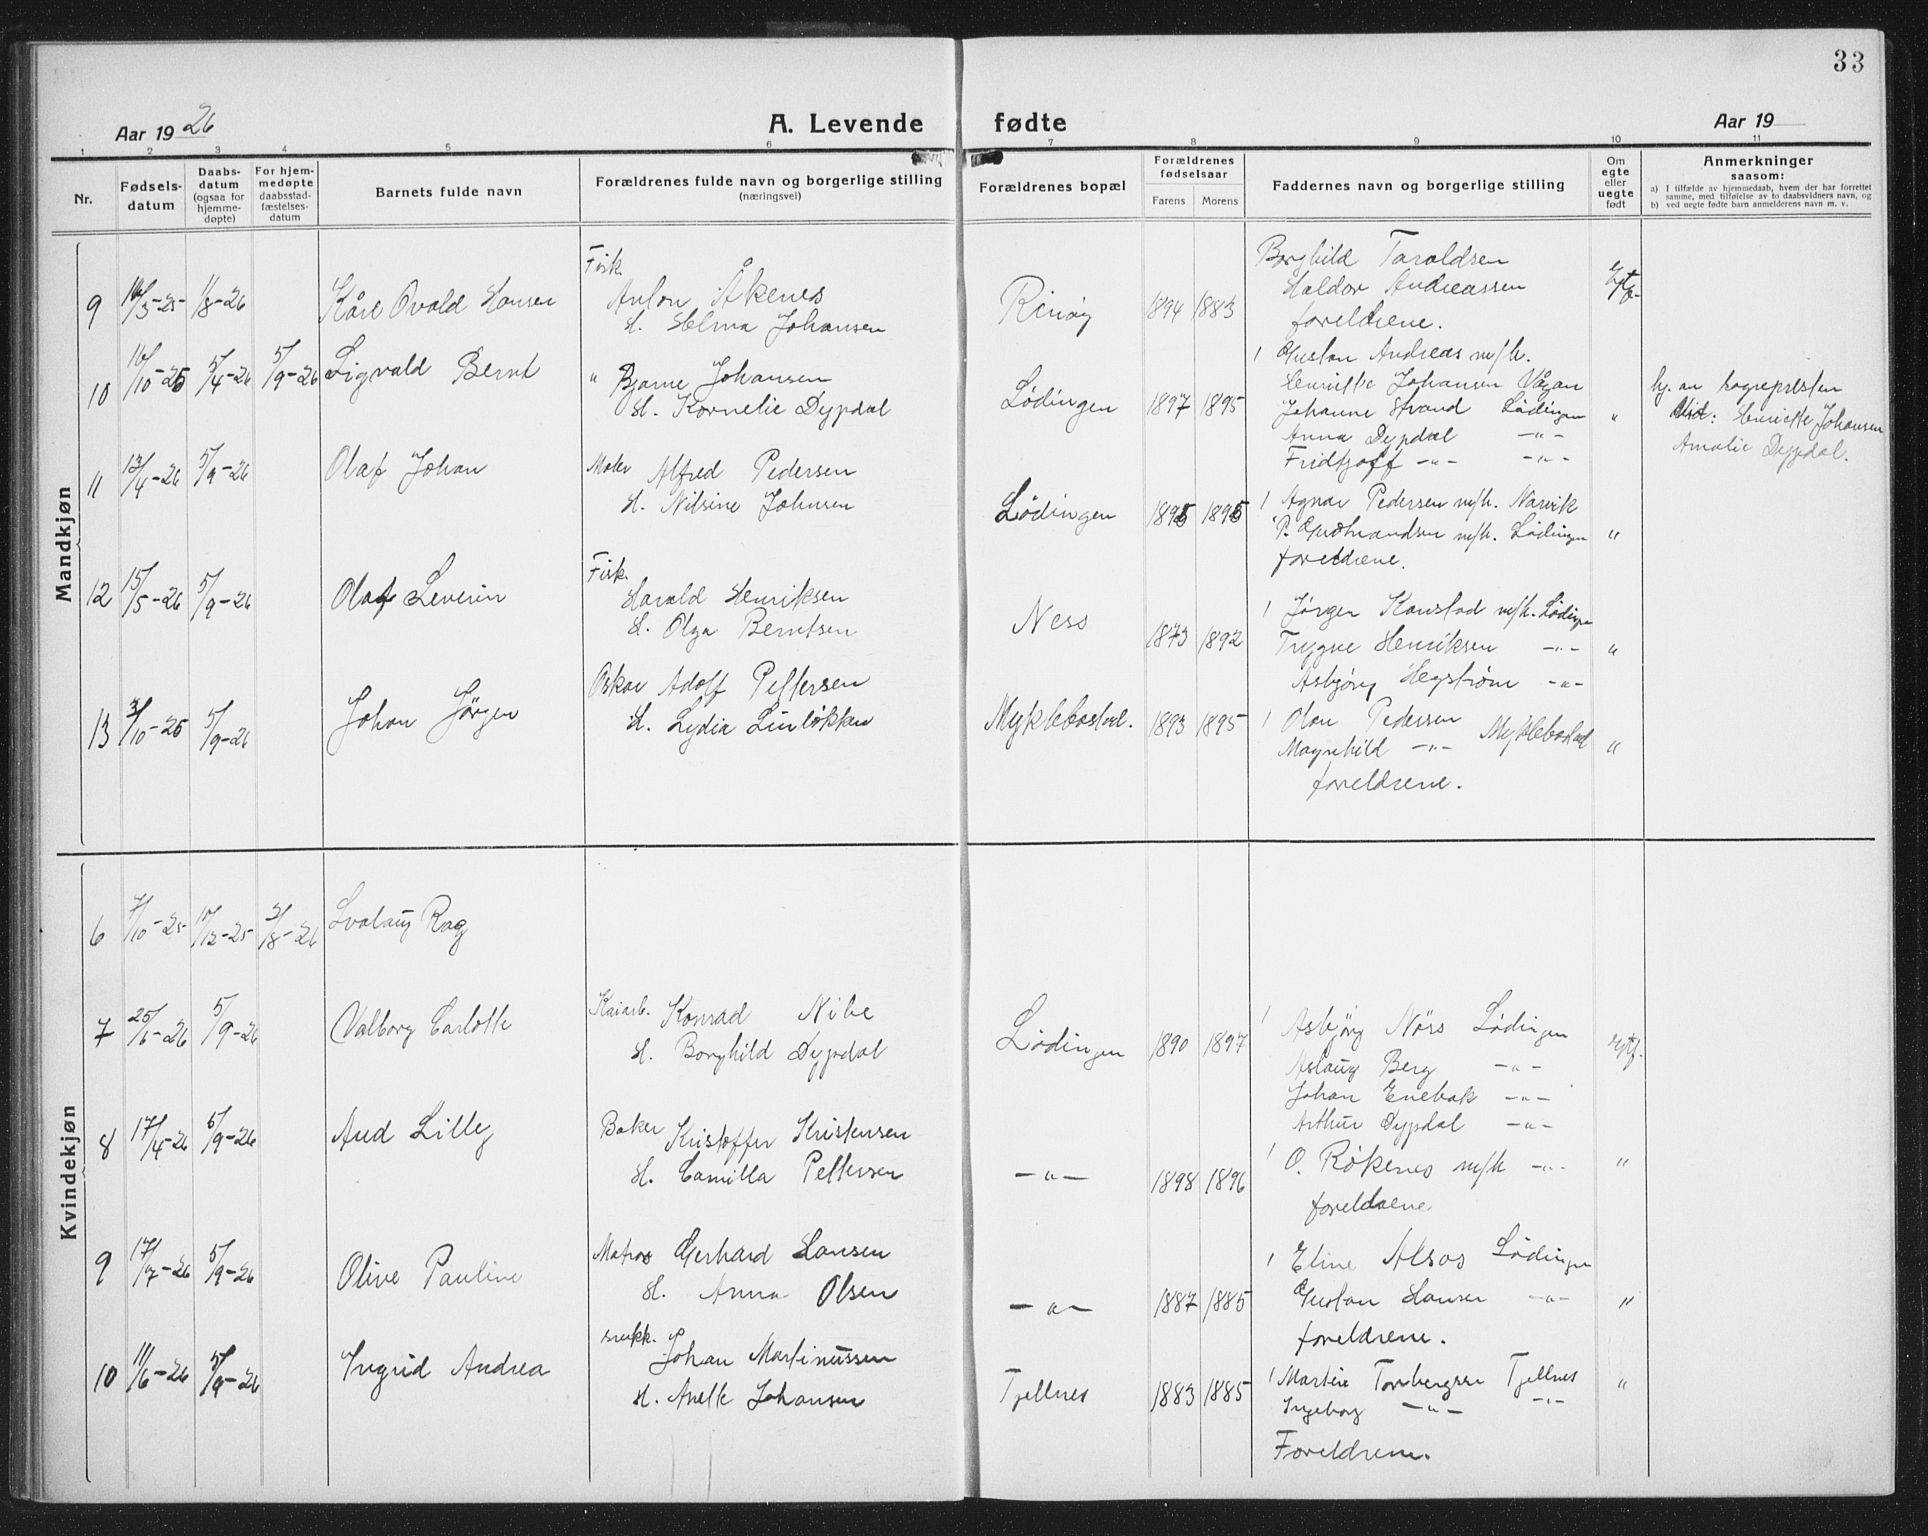 33
Aar 1926
A. Levende fødte
Aar 19
1 2 3 4 5 6 7 8 9 10 11
Nr.
Fødsels-
datum
Daabs-
datum
(ogsaa for
hjemme-
døpte)
For hjem-
medøpte
daabsstad-
fæstelses-
datum
Barnets fulde navn
Forældrenes fulde navn og borgerlige stilling
(næringsvei)
Forældrenes bopæl
Forældrenes
fødselsaar
Farens Morens
Faddernes navn og borgerlige stilling
Om
egte
eller
uegte
født
Anmerkninger
saasom:
a) I tilfælde av hjemmedaab, hvem der har forrettet
samme, med tilføielse av to daabsvidners navn, og
b) ved uegte fødte barn anmelderens navn m. v.
Mandkjøn
9 16/3-25 1/8-26 Kåre Ovald Hansen
Fisk.
Anton Åkenes
H. Helma Johansen
Rinøy 1894 1883
Borghild Taraldsen
Haldor Andreassen
foreldrene.
10 16/10-25 5/4-26 5/9-26 Sigvald Bernt
" Bjarne Johansen
H. Kornelie Dypdal
Lødingen 1897 1895
1 Gustav Andreas m/h.
Henriette Johansen Vågan
Johanne Strand Lødingen "
Anna Dypdal -"-
Fridtjoff -"- -"-
hj. av sognepresten
Vid: Henriette Johansen
Amalie Dypdal.
11 13/4-26 5/9-26 Olaf Johan
Maler Alfred Pedersen
H. Nilsine Johnsen
Lødingen 1895 1895
1 Agnar Pedersen m/h. Narvik
P. Gudmundsen m/h. Lødingen "
foreldrene.
12 15/5-26 5/9-26 Olaf Severin
Fisk.
Harald Henriksen
H. Olga Berntsen
Ness 1873 1892
1 Jørgen Kanstad m/h. Lødingen
Trygve Henriksen -"- "
Asbjørg Hegstrøm -"-
13 3/10-25 5/9-26 Johan Jörgen
Oskar Adolf Pettersen
H. Lydia Linløkken
Myklebostad. 1893 1895
1 Olav Pedersen
Magnhild -"- Myklebostad "
foreldrene.
Kvindekjøn
6 7/10-25 10/12-25 2/8-26 Svalaug Rag
7 25/5-26 5/9-26 Valborg Carlotte
Kaiarb. Konrad Nibe
H. Borghild Dypdal
Lødingen 1890 1897
1 Asbjörg Nörs Lødingen
Aslaug Berg -"-
Johan Enebak -"-
Arthur Dypdal -"-
8 17/4-26 5/9-26 Aud Lilly
Baker Kristoffer Kristensen
H. Camilla Pettersen
-"- 1898 1896
1 O. Røkenes m/h -"- "
foreldrene
9 17/7-26 5/9-26 Olive Pauline
Matros Gerhard Hansen
H. Anna Olsen
-"- 1887 1885
1 Eline Alsos Lødingen
Gustav Hansen -"- "
foreldrene.
10 11/6-26 5/9-26 Ingrid Andrea
snekk. Johan Martinussen
H. Anette Johansen
Tjellnes 1883 1885
1 Martine Torbergsen Tjellnes "
Ingeborg -"- -"-
Foreldrene.